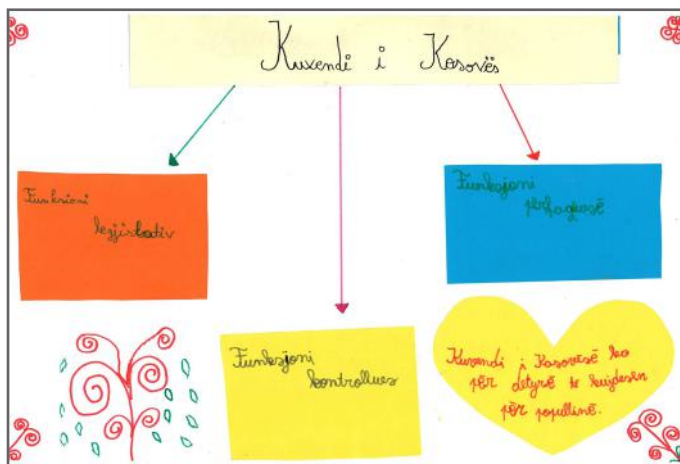 Kuvendi i Kosovës
Funksioni
legjislativ
Funksjoni
përfaqusë
Funksjoni
kontrollues
Kuvendi i Kosovësë ka
për detyrë te kujdesen
për popullinë.